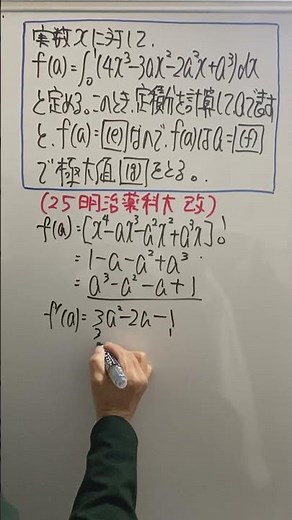 実数xに対して、
f(a)=∫₀¹(4x³-3ax²-2a²x+a³)dx
と定める。このとき、定積分を計算して
と、f(a)=(e)なので、f(a)はa=(f)
で極大値(g)をとる。
(25 明治薬科大 改)
f(a)=[x⁴-ax³-a²x²+a³x]₀¹
=1-a-a²+a³
=a³-a²-a+1
f'(a)=3a²-2a-1
3 1